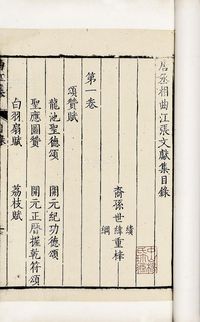 唐丞相曲江張文獻集目錄
裔孫世緯重梓
綱
第一卷
頌贊賦
龍池聖德頌 開元紀功德頌
聖應圖贊 開元正曆握乾符頌
白羽扇賦 荔枝賦